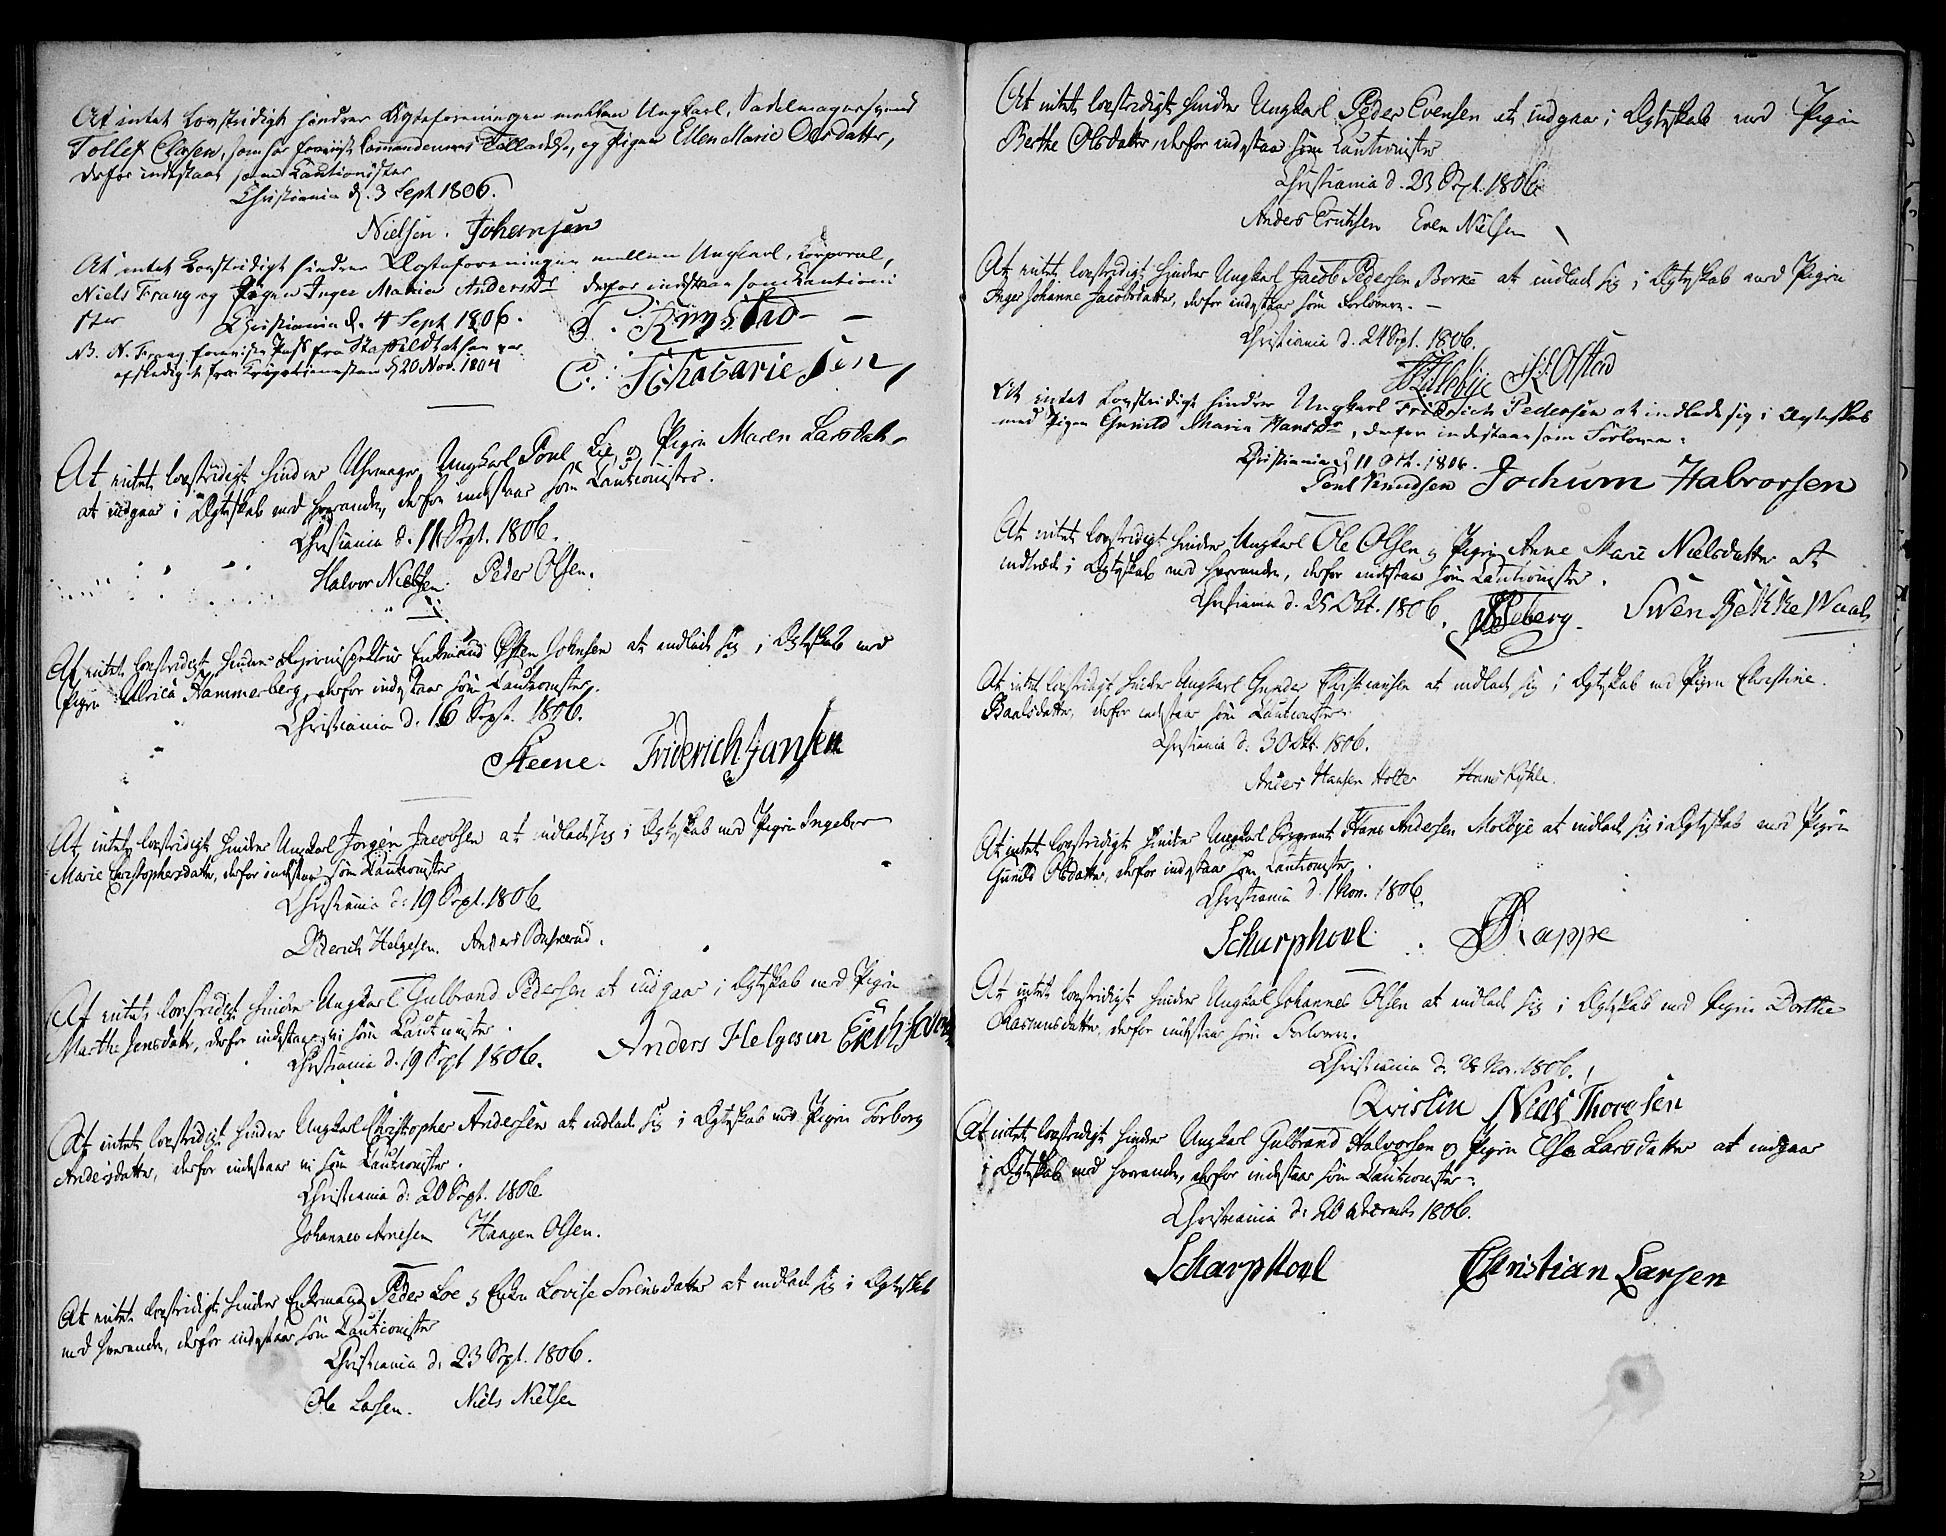 At intet lovstridigt hindrer Ægteforeningen mellem Ungkarl, Sadelmagersvend
Tollef Clasen, som har foreviist Commandeurens Tilladelse, og Pigen Ellen Marie Olsdatter,
derfor indestaae som Cautionister
Christiania d. 3 Sept 1806.
Nielsen. Johansen
At intet Lovstridigt hindrer Ægteforeningen mellem Ungkarl, Corporal,
Niels Frang og Pigen Inger Maria Andersdr derfor indestaae som Cautioni
ster Christiania d. 4 Sept 1806.
NB. N. Frang foreviiser Pass fra
afskediget fra d 20 Nov. 1804
C. Zachariesen,
At intet lovstridigt hinder Uhrmager, Ungkarl Poul Lie og Pigen Maren Larsdatter
at indgaae i Ægteskab med hverandre, derfor indestaar som Cautionister.
Christiania d. 11 Sept. 1806.
Halvor Nielsen. Peder Olsen.
At intet lovstridigt hinder Enkemand Østen Johnsen at indlade sig i Ægteskab med
Pigen Ulrica Hammerberg, derfor indestaar som Cautionister.
Christiania d. 16 Sept. 1806.
Steene. Friderich Jansen
At intet lovstridigt hinder Ungkarl Jørgen Jacobsen at indlade sig i Ægteskab med Pigen Ingebor
Marie Christophersdatter, derfor indestaar som Cautionister
Christiania d. 19 Sept. 1806.
Diderich Helgesen. Anders Buskerud.
At intet lovstridigt hinder Ungkarl Gulbrand Pedersen at indgaar i Ægteskab med Pigen
Marthe Jensdatter, derfor indestaar vi som Cautionister.
Christiania d. 19 Sept 1806. Anders Helgesen
At intet lovstridigt hinder Ungkarl Christopher Andersen at indlade sig i Ægteskab med Pigen Torborg
Andersdatter, derfor indestaar vi som Cautionister.
Christiania d. 20 Sept. 1806
Johannes Arnesen Haagen Olsen.
At intet lovstridigt hinder Enkemand Peder Loe og Enken Lovise Sørensdatter at indlade sig i Ægteskab
med hverandre, derfor indestaar som Cautionister
Christiania d. 23 Sept. 1806.
Ole Larsen. Niels Nielsen
At intet lovstridigt hinder Ungkarl Peder Evensen at indgaar i Ægteskab med Pigen
Berthe Olsdatter, derfor indestaar som Cautionister
Christiania d. 23 Sept. 1806
Anders Erichsen Even Nielsen
At intet lovstridigt hinder Ungkarl Jacob Pedersen Borke at indlade sig i Ægteskab med Pigen
Inger Johanne Jacobsdatter, derfor indestaar som Forlovere.
Christiania d. 24 Sept. 1806.
At intet Lovstridigt hinder Ungkarl Fridrich Pedersen at indlade sig i Ægteskab
med Pigen Gunild Maria Hansdr, derfor indestaar som Forlovere:
Christiania d 11 Oct. 1806.
Poul Knudsen Jochum Halvorsen
At intet lovstridigt hinder Ungkarl Ole Olsen og Pigen Anne Marie Nielsdatter at
indtræde i Ægteskab med hverandre, derfor indestaar som Cautionister.
Christiania d. 25 Okt. 1806.
Seeberg. Swen
At intet lovstridigt hinder Ungkarl Gunder Christiansen at indlade sig i Ægteskab med Pigen Christine
Paalsdatter, derfor indestaar som Cautionister.
Christiania d: 30 Okt. 1806.
Anders Hansen Holter Hans
At intet lovstridigt hinder Ungkarl Sergeant Hans Andersen Molbye at indlade sig i Ægteskab med Pigen
Gunild Olsdatter, derfor indestaar som Cautionister.
Christiania d. 1 Nov. 1806.
Scharphovl. Rappe
At intet lovstridigt hinder Ungkarl Johannes Olsen at indlade sig i Ægteskab med Pigen Dorthe
Rasmusdatter, derfor indestaar som Forlovere.
Christiania d. 28 Nov. 1806.
Qvislin Niels Thoresen
At intet lovstridigt hinder Ungkarl Gulbrand Halvorsen og Pigen Else Larsdatter at indgaar
i Ægteskab med hverandre, derfor indestaar som Cautionister:
Christiania d. 20 1806.
Scharphovl Christian Larsen